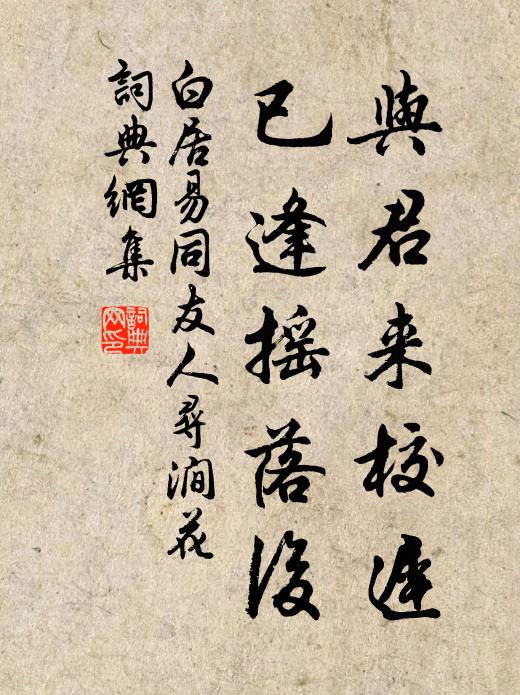 與君来校遲
已逢摇落後
白居易同友人尋澗花
詞典網集
詞典
网印